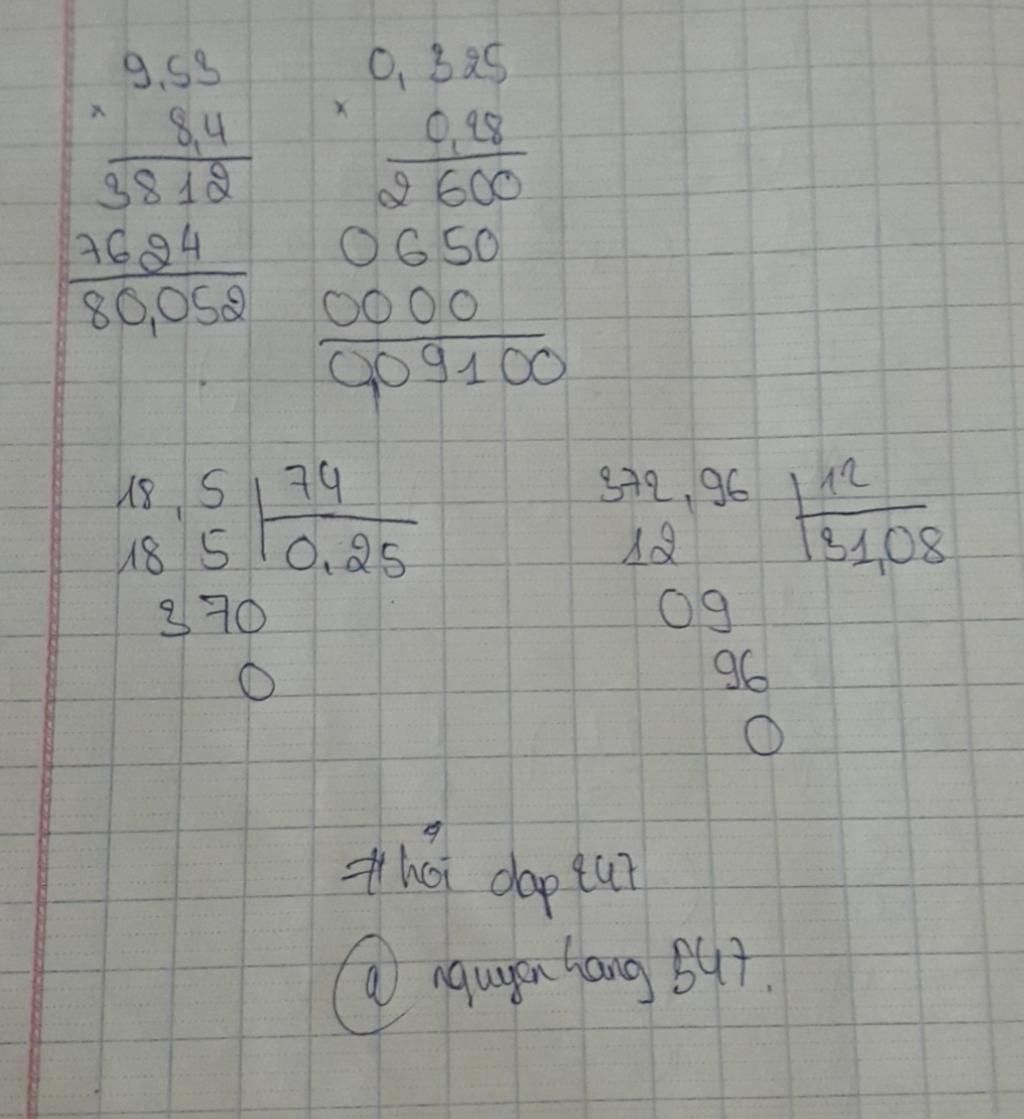 9,53 0,325
× 8,4 × 0,28
3812 2600
7624 0650
80,052 0000
0,09100
18,5 74 372,96 12
18 5 0,25 12 31,08
370 09
0 96
0
#hỏi dap 247
@ nguyenhang 547.